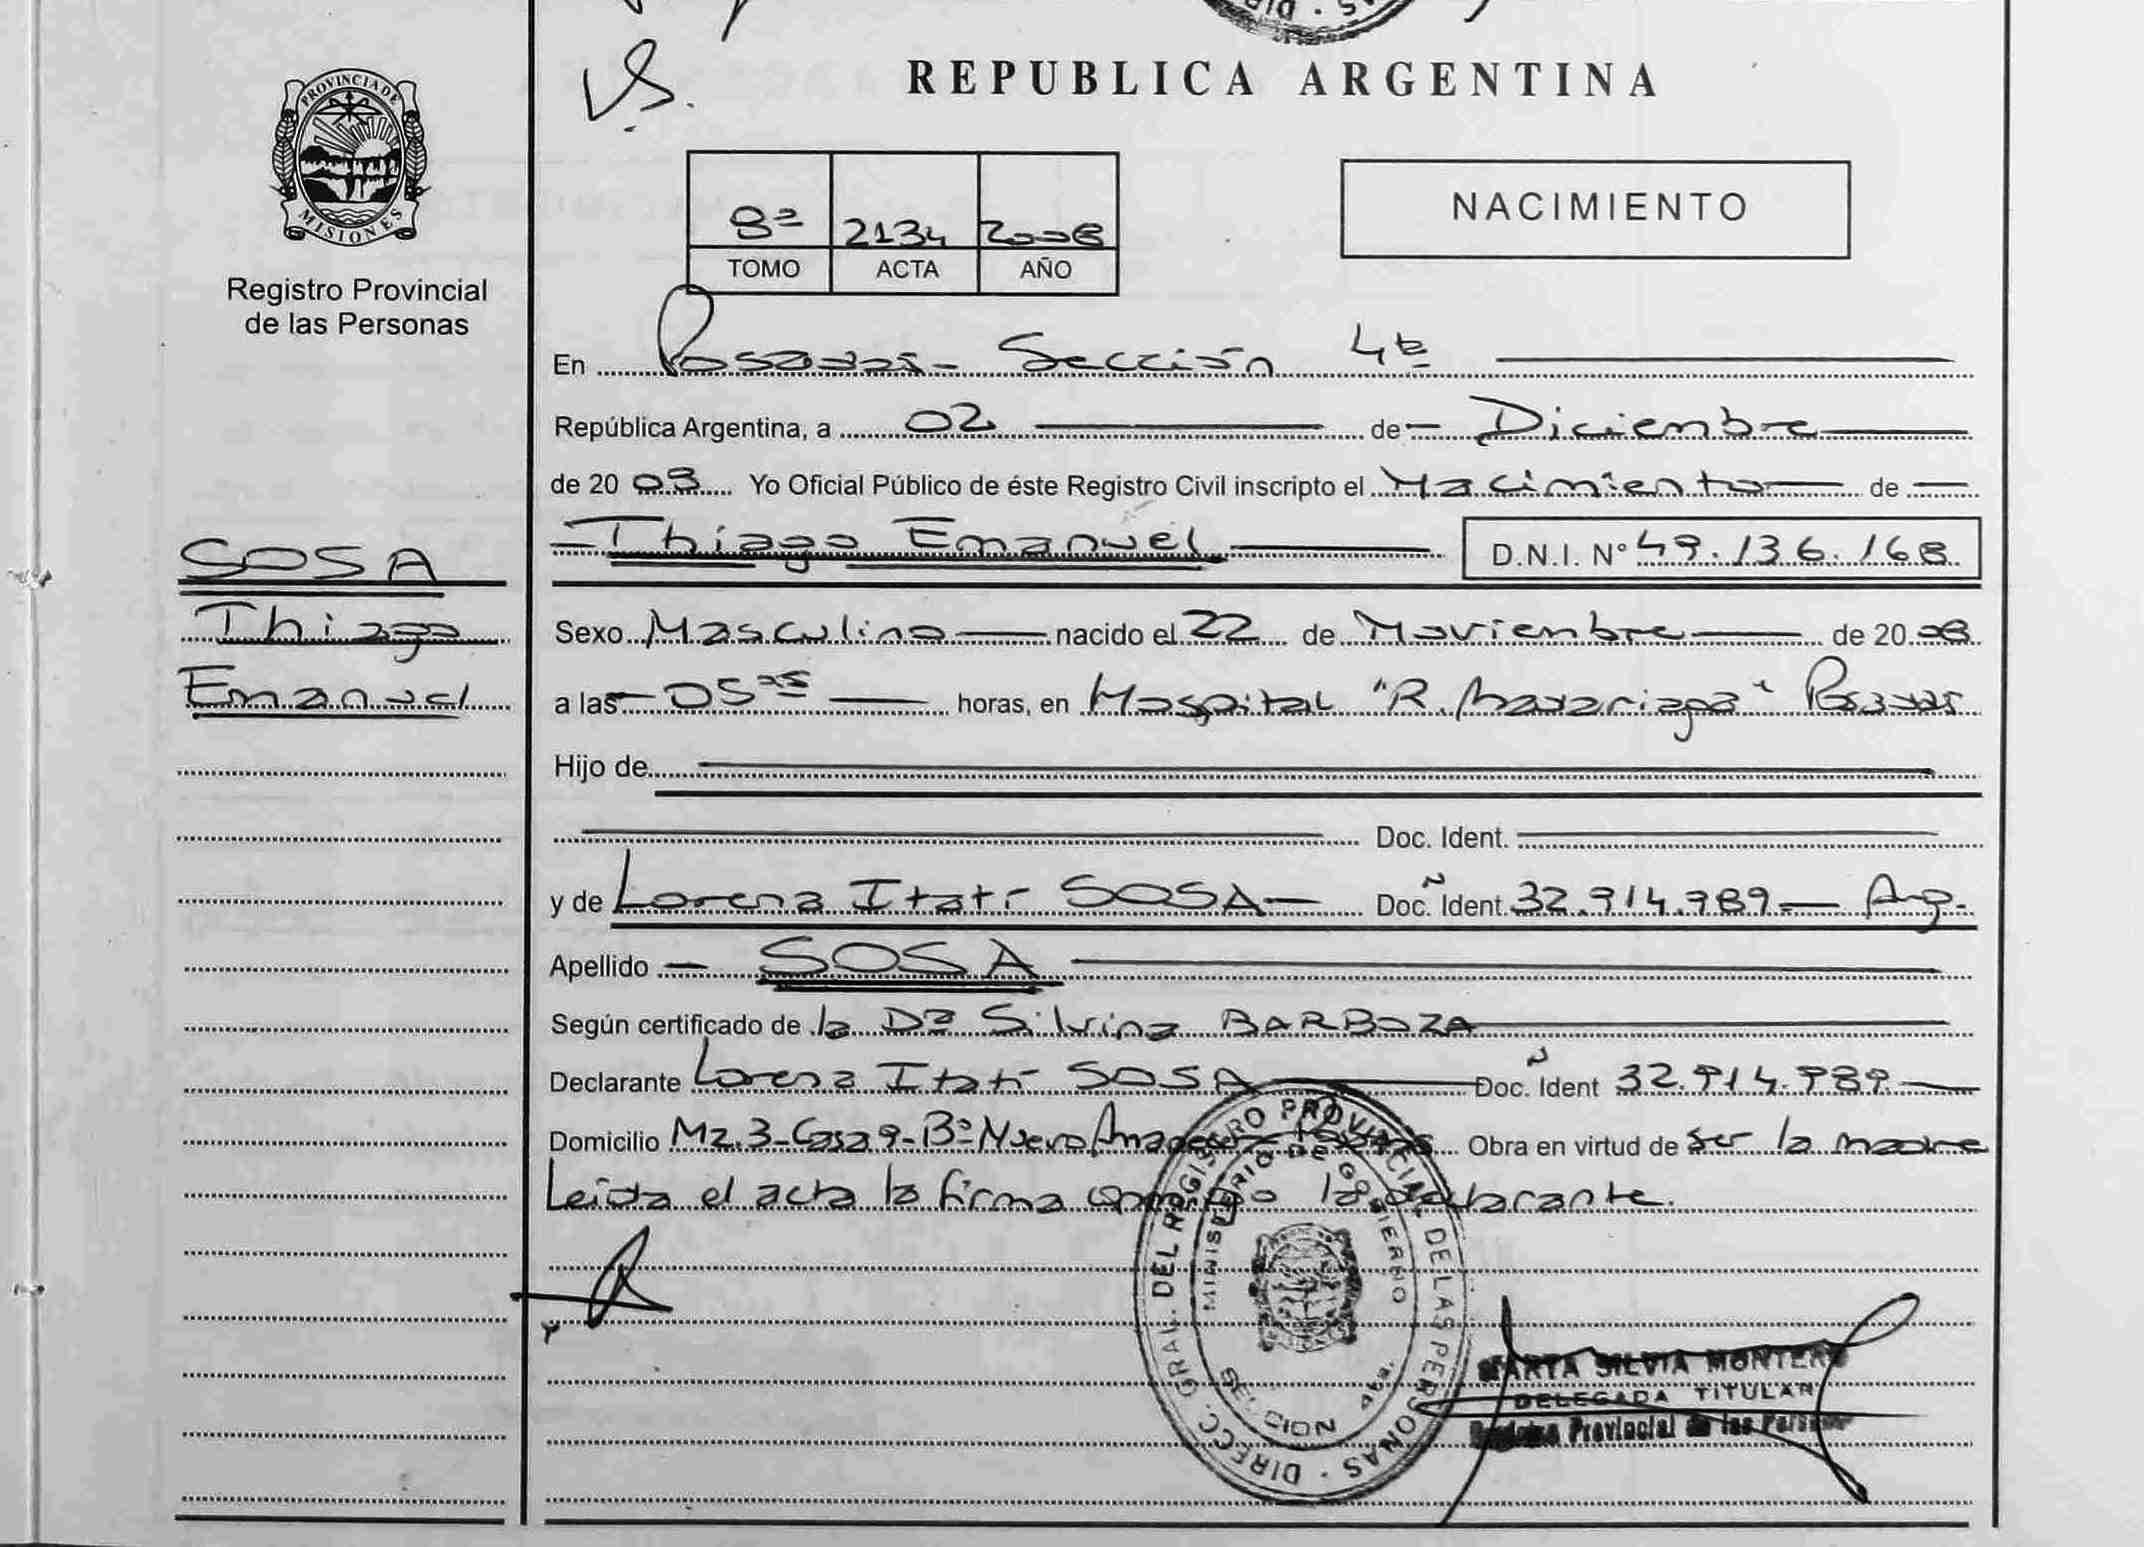 V.S.
REPUBLICA ARGENTINA
PROVINCIA DE
MISIONES
Registro Provincial
de las Personas
8ª 2134 2008
TOMO ACTA AÑO
NACIMIENTO
En Posadas - Sección 4ta
República Argentina, a 02 de Diciembre
de 20 08 Yo Oficial Público de éste Registro Civil inscripto el Nacimiento de
Thiago Emanuel D.N.I. N° 49.136.168
SOSA
Thiago
Emanuel
Sexo Masculino nacido el 22 de Noviembre de 20 08
a las 05 horas, en Hospital "R. Madariaga" Posadas
Hijo de
Doc. Ident.
y de Lorena Itatí SOSA Doc. Ident. 32.914.989 Arg.
Apellido SOSA
Según certificado de la Dra Silvina BARBOZA
Declarante Lorena Itatí SOSA Doc. Ident 32.914.989
Domicilio Mz.3-Casa 9-Bº Nuevo Amanecer - Posadas Obra en virtud de ser la madre
Leida el acta la firma conmigo la declarante.
DIRECC. GRAL. DEL REGISTRO PROVINCIAL DE LAS PERSONAS
MINISTERIO DE GOBIERNO
MARTA SILVIA MONTERO
DELEGADA TITULAR
Registro Provincial de las Personas